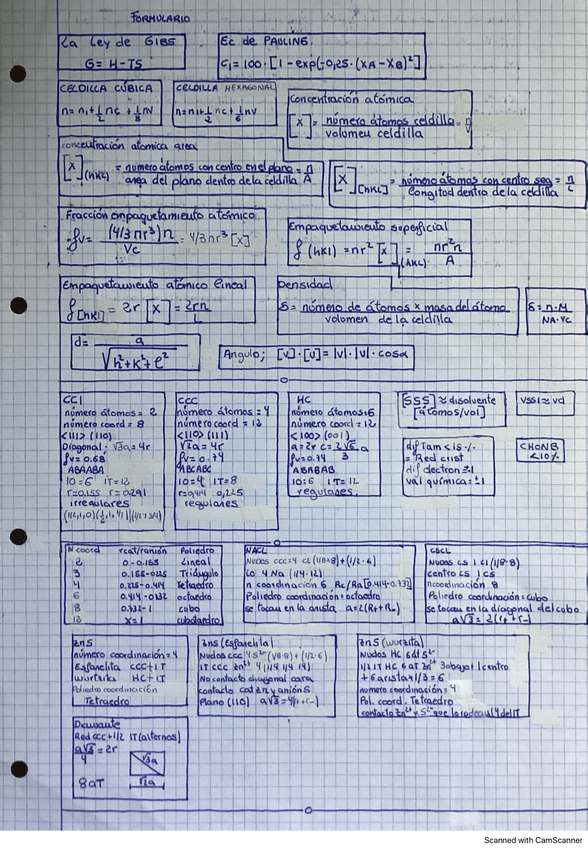 FORMULARIO
La Ley de GIBS
G= H-TS
Ec de PAULING
Ci=100·[1-exp(-0,25·(XA-XB)²)]
CELDILLA CÚBICA
n= ni+½nc+⅛nv
CELDILLA HEXAGONAL
n=ni+½nc+⅙nv
Concentración atómica
[X]= número átomos celdilla / volumeu celdilla
concentración atomica area
[X](hkl) = número átomos con centro en el plano / area del plano dentro de la celdilla = n/A
[X][hkl] = número átomos con centro seg / Longitod dentro de la celdilla = n/L
Fracción empaquetamiento atómico
fv= (4/3πr³)n / Vc = 4/3πr³[X]
Empaquetamiento superficial
f(hkl)=πr²[X](hkl) = πr²n / A
Empaquetamiento atómico lineal
f[hkl] = 2r[X]= 2rn / L
Densidad
δ= número de átomos x masa del átomo / volumen de la celdilla
δ= n·M / NA·VC
d= a / √h²+k²+l²
Angulo; [v]·[u]=|v|·|u|·cosα
CCI
número átomos= 2
número coord = 8
<111> (110)
Diagonal· √3a=4r
fv=0.68
ABABAB
IO=6 IT=12
r=0.155 r=0.291
irregulares
CCC
número átomos=4
número coord = 12
<110> (111)
√2a=4r
fv=0.74
ABCABC
IO=4 IT=8
r=0,414 0,225
regulares
HC
número átomos=6
número coord=12
<100> (001)
a=2r c= 2√6/3 a
fv=0.74
ABABAB
IO=6 IT=12
regulares
[SSS] ≈ disolvente
[átomos/vol]
VSSI≈Vd
dif Tam<15·/·
= Red crist
dif electron ±1
val química=±1
CHONB
<10%
N coord rcat/ranión Poliedro
2 0-0.155 Lineal
3 0.155-0.225 Triángulo
4 0.225-0.414 Tetraedro
6 0.414-0.732 octaedro
8 0.732-1 cubo
12 x=1 cuboctaedro
NACL
Nudos ccc=4 CL (1/8·8)+(1/2·6)
Io 4 Na (1/4·12)
n coordinación 6 Rc/Ra[0.414-0.732]
Poliedro coordinación= octaedro
se tocan en la arista a=2(R++R-)
CSCL
Nudos CS 1 Cl (1/8·8)
centro CS 1 CS
n coordinación 8
Poliedro coordinación=cubo
se tocan en la diagonal del cubo
a√3=2(r++r-)
ZnS
número coordinación=4
Esfanelita CCC+IT
wurtzita HC+IT
Poliedro coordinación
Tetraedro
Zns (Esfanelita)
Nudos ccc 4 S²⁻ (1/8·8)+(1/2·6)
IT CCC Zn²⁺ 4 (1/4 1/4 1/4)
No contacto diagonal cara
contacto cat Zn y anión S
Plano (110) a√3=4(r++r-)
ZnS (wurzita)
Nudos HC 6at S²⁻
1/2 IT HC 6 AT Zn²⁺ 3 abajo 1 centro
+6 arista x 1/3=6
numero coordinación=4
Pol. coord. Tetraedro
contacto Zn²⁺ x S²⁻ que lo rodea ul 4 del IT
Diamante
Red CCC+1/2 IT(alternos)
a√3/4 =2r
√3a
√2a
8 aT
Scanned with CamScanner